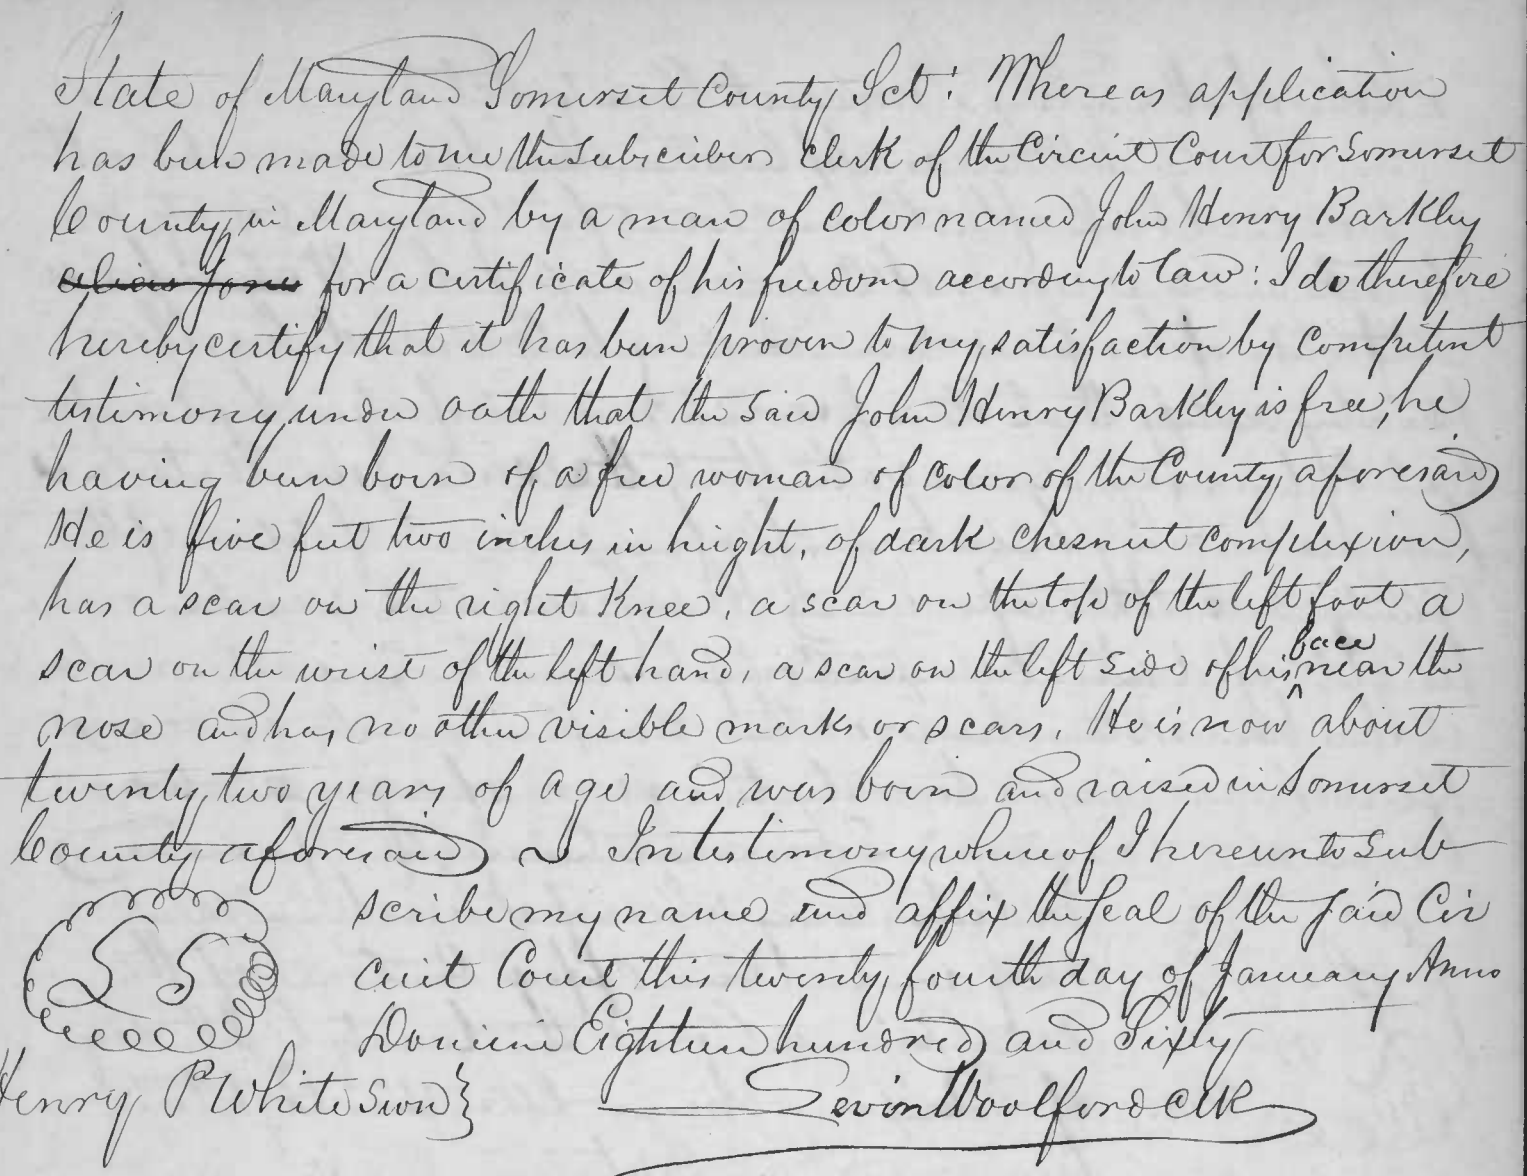 State of Maryland Somerset County Sct: Whereas application
has been made to me the Subscriber Clerk of the Circuit Court for Somerset
County in Maryland by a man of color named John Henry Barkley
alias Jones for a certificate of his freedom according to law: I do therefore
hereby certify that it has been proven to my satisfaction by competent
testimony under oath that the said John Henry Barkley is free, he
having been born of a free woman of color of the County aforesaid
He is five feet two inches in height, of dark chesnut complexion,
has a scar on the right Knee, a scar on the top of the left foot a
scar on the wrist of the left hand, a scar on the left side of his face near the
nose and has no other visible marks or scars. He is now about
twenty two years of age and was born and raised in Somerset
County aforesaid ~ In testimony whereof I hereunto sub
scribe my name and affix the Seal of the said Cir
cuit Court this twenty fourth day of January Anno
Domini Eighteen hundred and Sixty
L S
Henry P White Swon }
Levin Woolford Clk